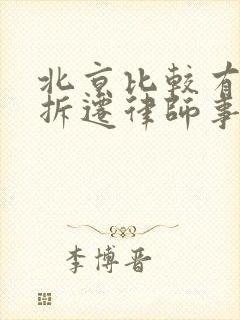 北京比較有
拆遷律師事
李博晋